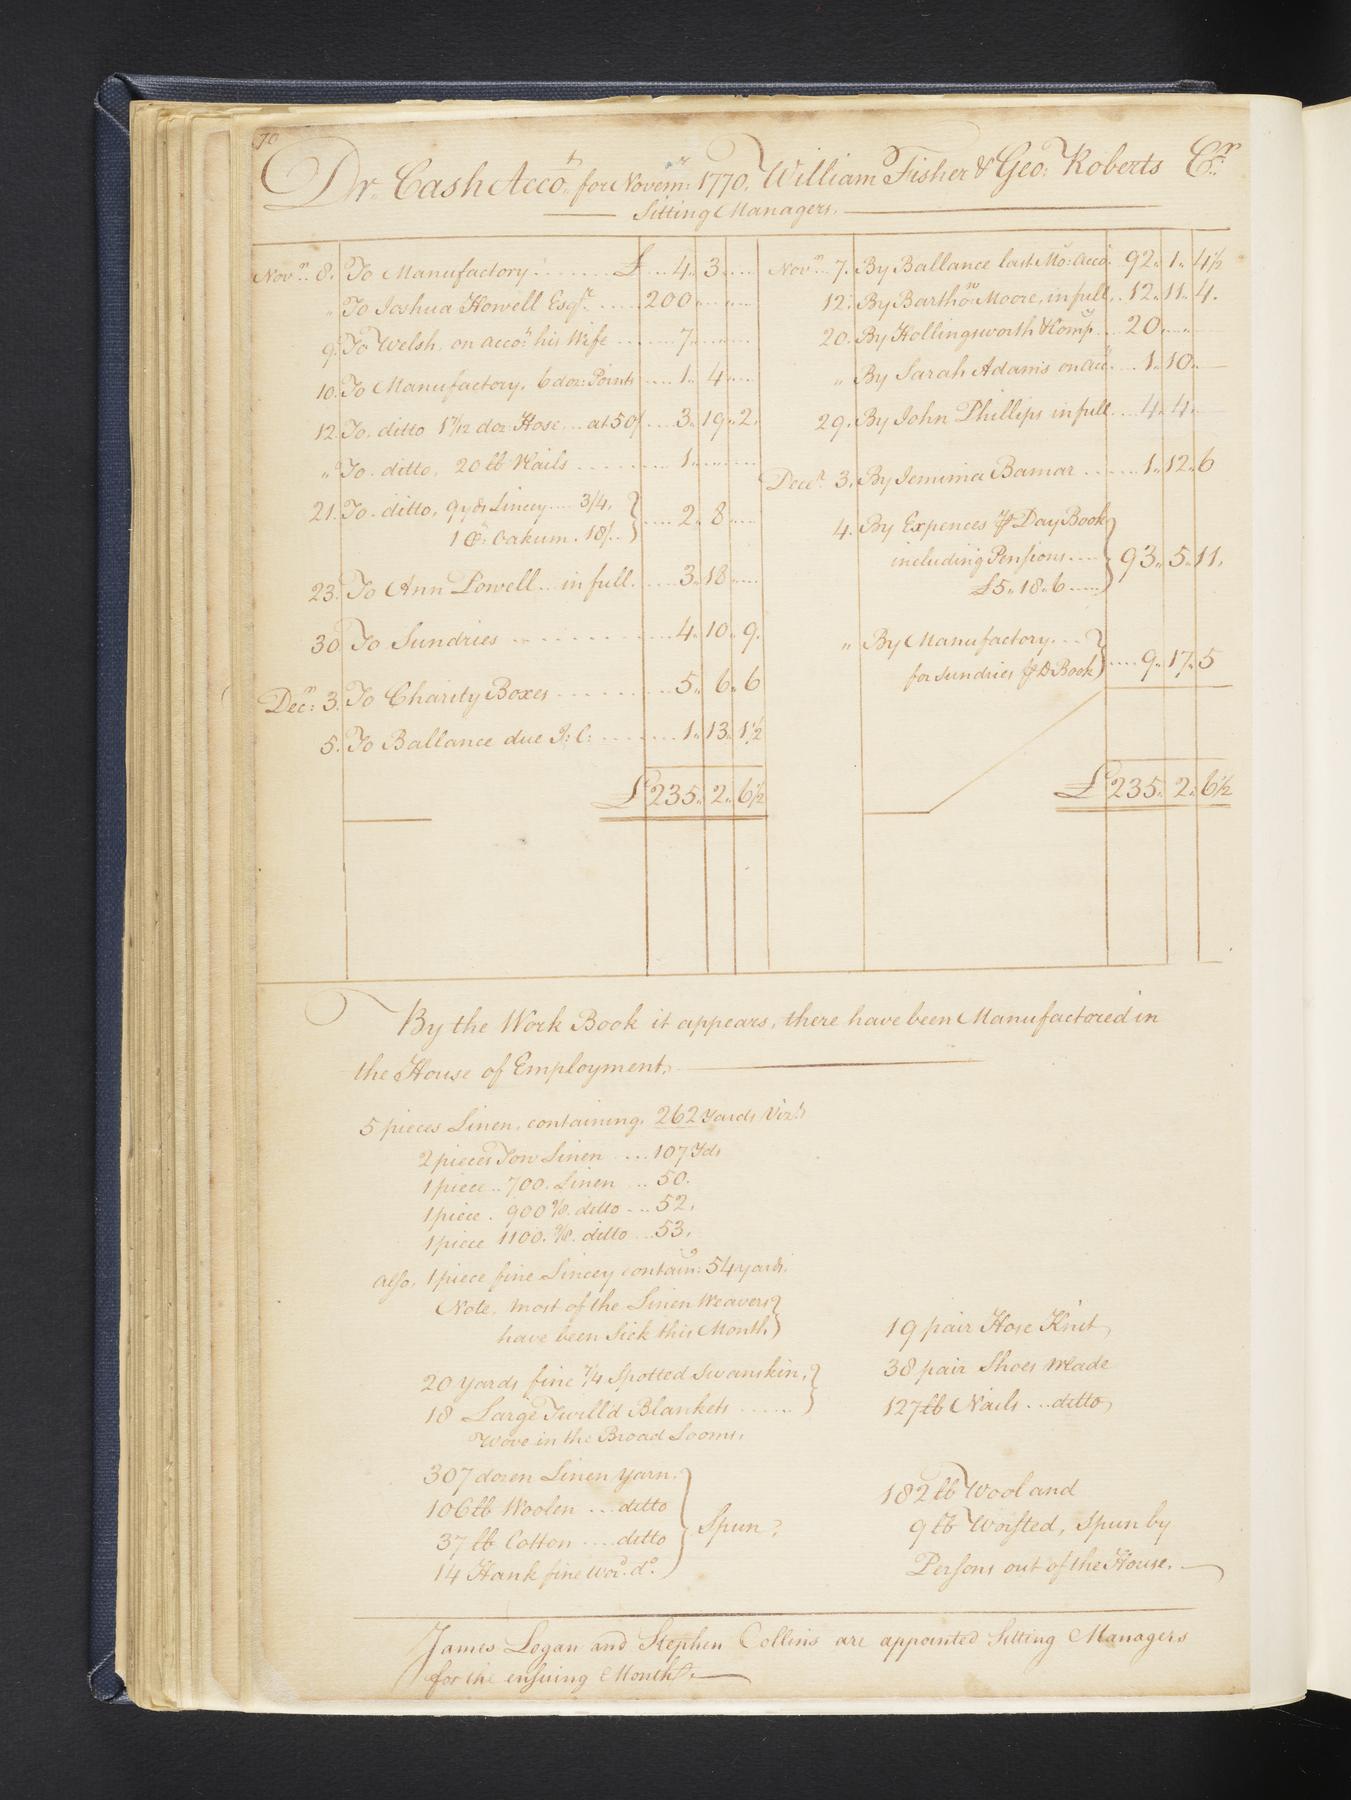 70
Dr. Cash Acco.t for Novem.r 1770. William Fisher & Geo: Roberts C.r
Sitting Managers.
Nov.r 8. To Manufactory £ 4 3
" To Joshua Howell Esq.r 200
9. To Welsh, on acco.t his Wife 7
10. To Manufactory, 6 doz: Points 1 4
12. To ditto 1 7/12 doz Hose at 50/ 3 19 2
" To ditto, 20 lb Nails 1
21. To ditto, 9 yds Lincey 3/4.
1 C: Oakum. 18/. 2 8
23. To Ann Powell in full. 3 18
30 To Sundries 4 10 9
Dec.r 3. To Charity Boxes 5 6 6
5. To Ballance due J: C: 1 13 1½
£ 235 2 6½
Nov.r 7. By Ballance last Mo: Acco. 92 1 4½
12. By Bartho.w Moore, in full 12 11 4
20. By Hollingsworth & Comp. 20
" By Sarah Adams on acc. 1 10
29. By John Phillips in full 4 4
Dec.r 3. By Jemima Bamar 1 12 6
4. By Expences ⅌ Day Book
including Pensions
£5 18 6 93 5 11
" By Manufactory
for Sundries ⅌ D Book 9 17 5
£ 235 2 6½
By the Work Book it appears, there have been Manufactored in
the House of Employment.
5 pieces Linen, containing, 262 Yards Viz.t
2 pieces Tow Linen 107 Yds
1 piece 700. Linen 50.
1 piece 900 ⅞ ditto 52.
1 piece 1100. ditto 53.
also, 1 piece fine Lincey contain.g 54 yards.
Note, most of the Linen Weavers
have been Sick this Month
20 yards fine 7/4 Spotted Swanskin,
18 Large Twill'd Blankets
Wove in the Broad Looms.
307 dozen Linen Yarn,
106 lb Woolen ditto
37 lb Cotton ditto
14 Hank fine Wor.d d.o
Spun
19 pair Hose Knit
38 pair Shoes Made
127 lb Nails ditto
182 lb Wool and
9 lb Worsted, Spun by
Persons out of the House.
James Logan and Stephen Collins are appointed Sitting Managers
for the ensuing Month.